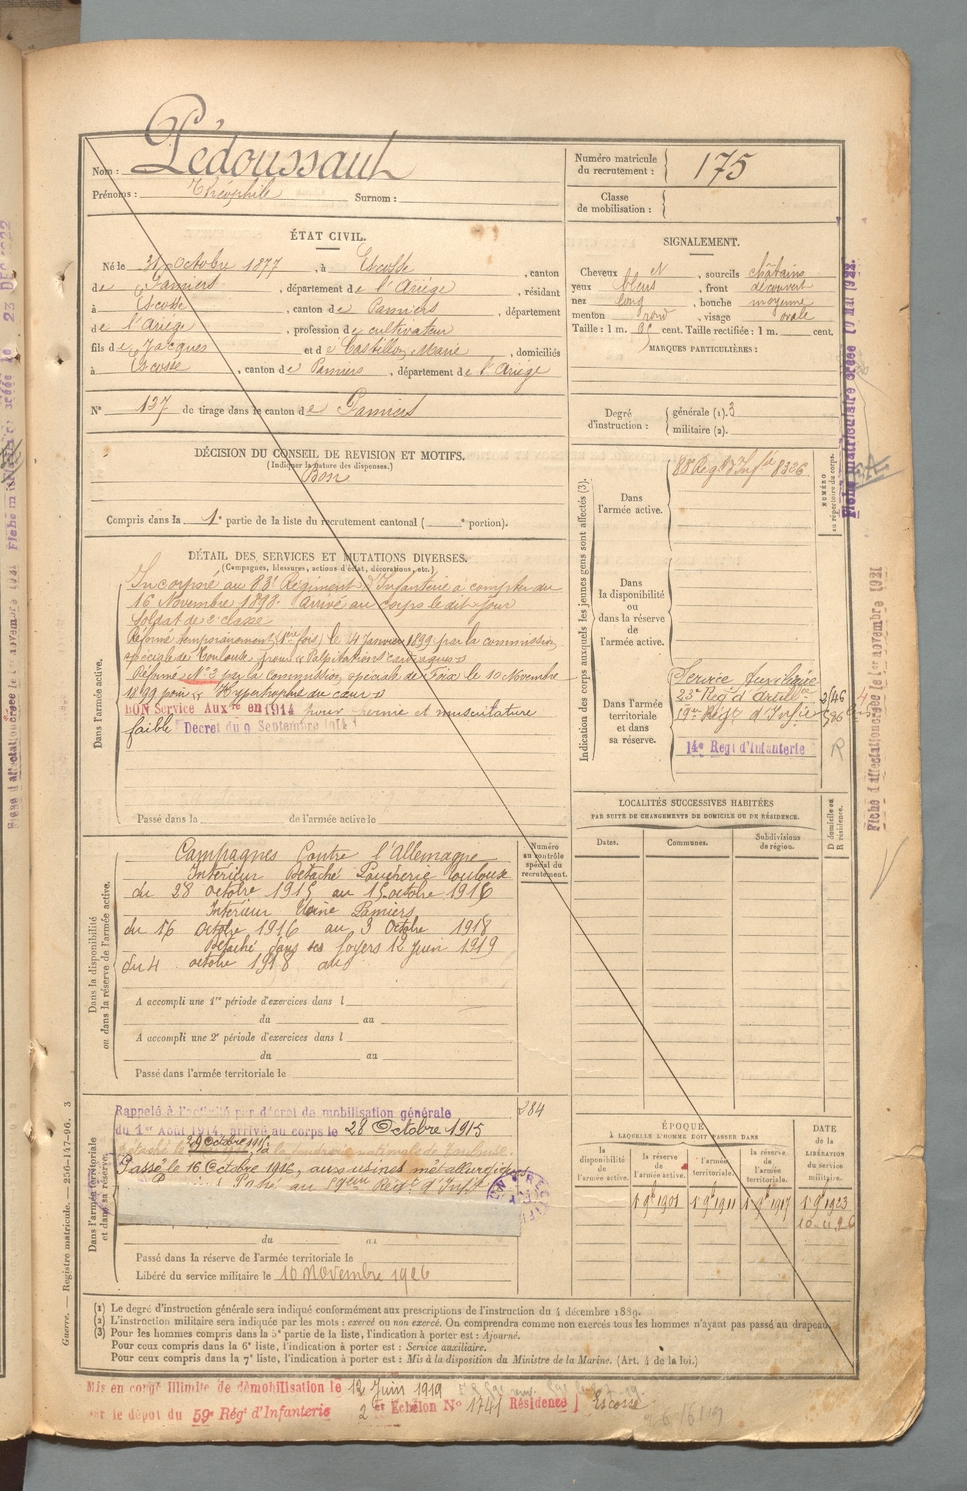 Nom : Pédoussaut
Prénoms : Théophile Surnom :
Numéro matricule du recrutement : 175
Classe de mobilisation :
ÉTAT CIVIL.
Né le 31 octobre 1877, à Escosse, canton
de Pamiers, département de l'Ariège, résidant
à Escosse, canton de Pamiers, département
de l'Ariège, profession de cultivateur
fils de Jacques et de Castillon Marie, domiciliés
à Escosse, canton de Pamiers, département de l'Ariège
N° 137 de tirage dans le canton de Pamiers
SIGNALEMENT.
Cheveux et, sourcils châtains
yeux bleus, front découvert
nez long, bouche moyenne
menton rond, visage ovale
Taille : 1 m. cent. Taille rectifiée : 1 m. cent.
MARQUES PARTICULIÈRES :
Degré d'instruction : générale (1). 3
militaire (2).
DÉCISION DU CONSEIL DE REVISION ET MOTIFS.
(Indiquer la nature des dispenses.)
Bon
Compris dans la 1e partie de la liste du recrutement cantonal ( e portion).
DÉTAIL DES SERVICES ET MUTATIONS DIVERSES.
(Campagnes, blessures, actions d'éclat, décorations, etc.)
Dans l'armée active.
Incorporé au 83e Régiment d'Infanterie à compter du
16 Novembre 1898. Arrivé au corps le dit jour
Soldat de 2e classe
Réformé temporairement (1ère fois) le 4 Janvier 1899 par la commission
spéciale de Toulouse pour "Palpitations cardiaques"
Réformé N° 2 par la Commission spéciale de Foix le 10 Novembre
1899 pour "Hypertrophie du cœur"
BON Service Auxre en 1914 pour hernie et musculature
faible Décret du 9 Septembre 1914
Passé dans la de l'armée active le
Indication des corps auxquels les jeunes gens sont affectés (3).
NUMÉRO au répertoire du corps.
Dans l'armée active.
Régt d'Infie 8326
Dans la disponibilité ou dans la réserve de l'armée active.
Dans l'armée territoriale et dans sa réserve.
Service Auxiliaire
23e Régt d'Artille
Régt d'Infie
14e Regt d'Infanterie
R
LOCALITÉS SUCCESSIVES HABITÉES
PAR SUITE DE CHANGEMENTS DE DOMICILE OU DE RÉSIDENCE.
D domicile ou R résidence.
Dates. Communes. Subdivisions de région.
Dans la disponibilité ou dans la réserve de l'armée active.
Numéro au contrôle spécial du recrutement.
Campagnes Contre l'Allemagne
Intérieur Détaché Poudrerie Toulouse
du 28 octobre 1915 au 15 octobre 1916
Intérieur Usine Pamiers
du 16 octobre 1916 au 3 Octobre 1918
Détaché dans ses foyers 12 juin 1919
du 4 octobre 1918 au
A accompli une 1re période d'exercices dans l
du au
A accompli une 2e période d'exercices dans l
du au
Passé dans l'armée territoriale le
Dans l'armée territoriale et dans sa réserve.
284
Rappelé à l'activité par décret de mobilisation générale
du 1er Août 1914, arrivé au corps le 28 Octobre 1915
29 Octobre 1915
nationale de Toulouse
Passé le 16 Octobre 1916, aux usines métallurgiques
Passé au Régt d'Infie
du au
Passé dans la réserve de l'armée territoriale le
Libéré du service militaire le 10 Novembre 1926
ÉPOQUE
A LAQUELLE L'HOMME DOIT PASSER DANS
la disponibilité de l'armée active. la réserve de l'armée active. l'armée territoriale. la réserve de l'armée territoriale.
DATE de la LIBÉRATION du service militaire.
1 9b 1901 1 9b 1911 1 9b 1917 1 9b 1923
10-11-26
(1) Le degré d'instruction générale sera indiqué conformément aux prescriptions de l'instruction du 4 décembre 1889.
(2) L'instruction militaire sera indiquée par les mots : exercé ou non exercé. On comprendra comme non exercés tous les hommes n'ayant pas passé au drapeau.
(3) Pour les hommes compris dans la 5e partie de la liste, l'indication à porter est : Ajourné.
Pour ceux compris dans la 6e liste, l'indication à porter est : Service auxiliaire.
Pour ceux compris dans la 7e liste, l'indication à porter est : Mis à la disposition du Ministre de la Marine. (Art. 4 de la loi.)
Mis en congé illimité de démobilisation le 12 Juin 1919
par le dépôt du 59e Rég' d'Infanterie 2 Echelon N° 1741 Résidence Escosse
Guerre. — Registre matricule. — 256-147-96. 3
Fiche matriculaire créée le 10 Mai 1922.
Fiche d'affectation créée le 1er novembre 1921
Fiche d'affectation créée le 1er novembre 1921